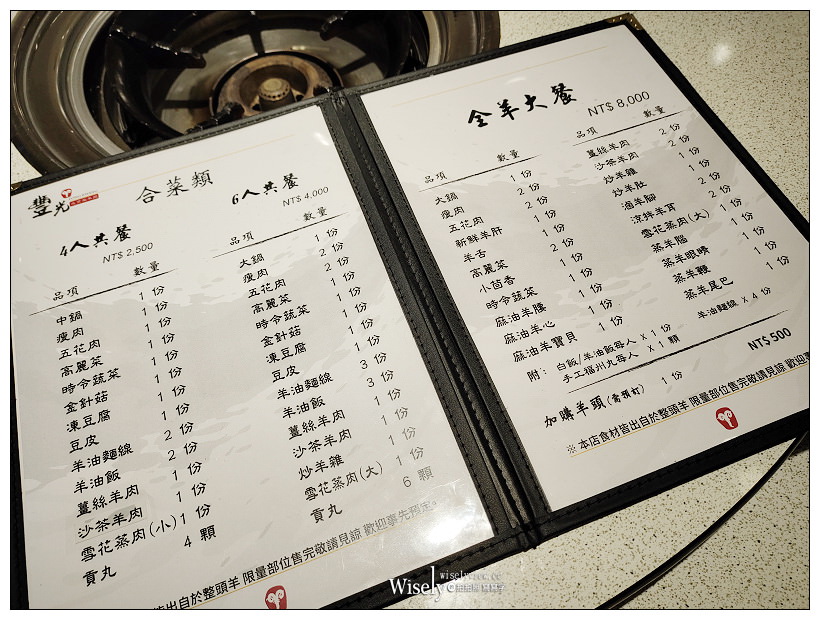 豐光
合菜類
4人共餐
NT$ 2,500
品項 數量
中鍋 1 份
瘦肉 1 份
五花肉 1 份
高麗菜 1 份
時令蔬菜 1 份
金針菇 1 份
凍豆腐 1 份
豆皮 1 份
羊油麵線 2 份
羊油飯 2 份
薑絲羊肉 1 份
沙茶羊肉 1 份
雪花蒸肉(小) 1 份
貢丸 4 顆
6人共餐
NT$ 4,000
品項 數量
大鍋 1 份
瘦肉 2 份
五花肉 2 份
高麗菜 1 份
時令蔬菜 1 份
金針菇 1 份
凍豆腐 1 份
豆皮 1 份
羊油麵線 3 份
羊油飯 3 份
薑絲羊肉 1 份
沙茶羊肉 1 份
炒羊雜 1 份
雪花蒸肉(大) 1 份
貢丸 6 顆
皆出自於整頭羊 限量部位售完敬請見諒 歡迎事先預定。
全羊大餐
NT$ 8,000
品項 數量
大鍋 1 份
瘦肉 2 份
五花肉 2 份
新鮮羊肝 1 份
羊舌 1 份
高麗菜 2 份
小茴香 1 份
時令蔬菜 2 份
麻油羊腰 1 份
麻油羊心 1 份
麻油羊寶貝 1 份
品項 數量
薑絲羊肉 2 份
沙茶羊肉 2 份
炒羊雜 1 份
炒羊肚 1 份
滷羊腳 2 份
涼拌羊耳 2 份
雪花蒸肉(大) 1 份
蒸羊腦 1 份
蒸羊眼睛 1 份
蒸羊鞭 1 份
蒸羊尾巴 1 份
附： 白飯/羊油飯每人 X 1 份 羊油麵線 X 4 份
手工福州丸每人 X 1 顆
加購羊頭(需預訂) 1 份 NT$ 500
※ 本店食材皆出自於整頭羊 限量部位售完敬請見諒 歡迎
Wisely